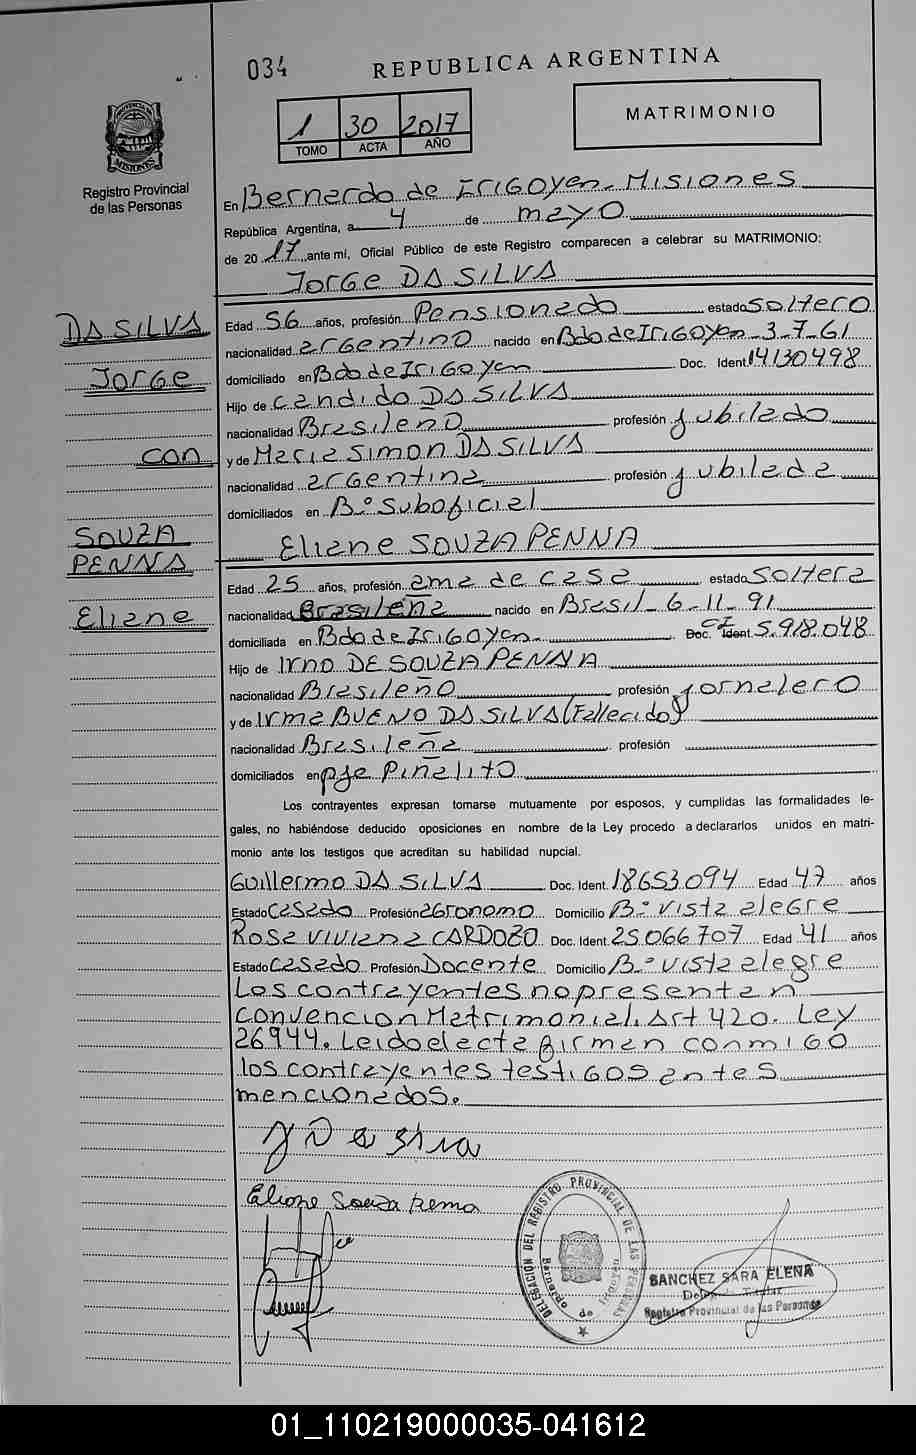 034 REPUBLICA ARGENTINA
1 30 2017 MATRIMONIO
TOMO ACTA AÑO
PROVINCIA DE MISIONES
Registro Provincial
de las Personas
En Bernardo de Irigoyen - Misiones
República Argentina, a 4 de mayo
de 2017 ante mí, Oficial Público de este Registro comparecen a celebrar su MATRIMONIO:
Jorge DA SILVA
DA SILVA
Jorge
con
SOUZA
PENNA
Eliane
Edad 56 años, profesión Pensionado estado soltero
nacionalidad argentino nacido en Bdo de Irigoyen - 3-7-61
domiciliado en Bdo de Irigoyen Doc. Ident 14130498
Hijo de Candido DA SILVA
nacionalidad Brasileño profesión jubilado
y de Maria Simon DA SILVA
nacionalidad argentina profesión jubilada
domiciliados en B.º Suboficial
Eliane SOUZA PENNA
Edad 25 años, profesión ama de casa estado soltera
nacionalidad Brasileña nacido en Brasil - 6-11-91
domiciliada en Bdo de Irigoyen - Doc. CI Ident 5.918.048
Hijo de Irno DE SOUZA PENNA
nacionalidad Brasileño profesión jornalero
y de Irma BUENO DA SILVA (Fallecido)
nacionalidad Brasileña profesión
domiciliados en pje Piñalito
Los contrayentes expresan tomarse mutuamente por esposos, y cumplidas las formalidades le-
gales, no habiéndose deducido oposiciones en nombre de la Ley procedo a declararlos unidos en matri-
monio ante los testigos que acreditan su habilidad nupcial.
Guillermo DA SILVA Doc. Ident. 18653094 Edad 47 años
Estado Casado Profesión agronomo Domicilio B.º Vista alegre
Rosa Viviana CARDOZO Doc. Ident. 25066707 Edad 41 años
Estado Casado Profesión Docente Domicilio B.º Vista alegre
Los contrayentes no presentan
convencion Matrimonial. Art 420. Ley
26944. Leido el acta firman conmigo
los contrayentes testigos antes
mencionados.
Eliane Souza Penna
DELEGACION DEL REGISTRO PROVINCIAL DE LAS PERSONAS
SANCHEZ SARA ELENA
Registro Provincial de las Personas
01_110219000035-041612